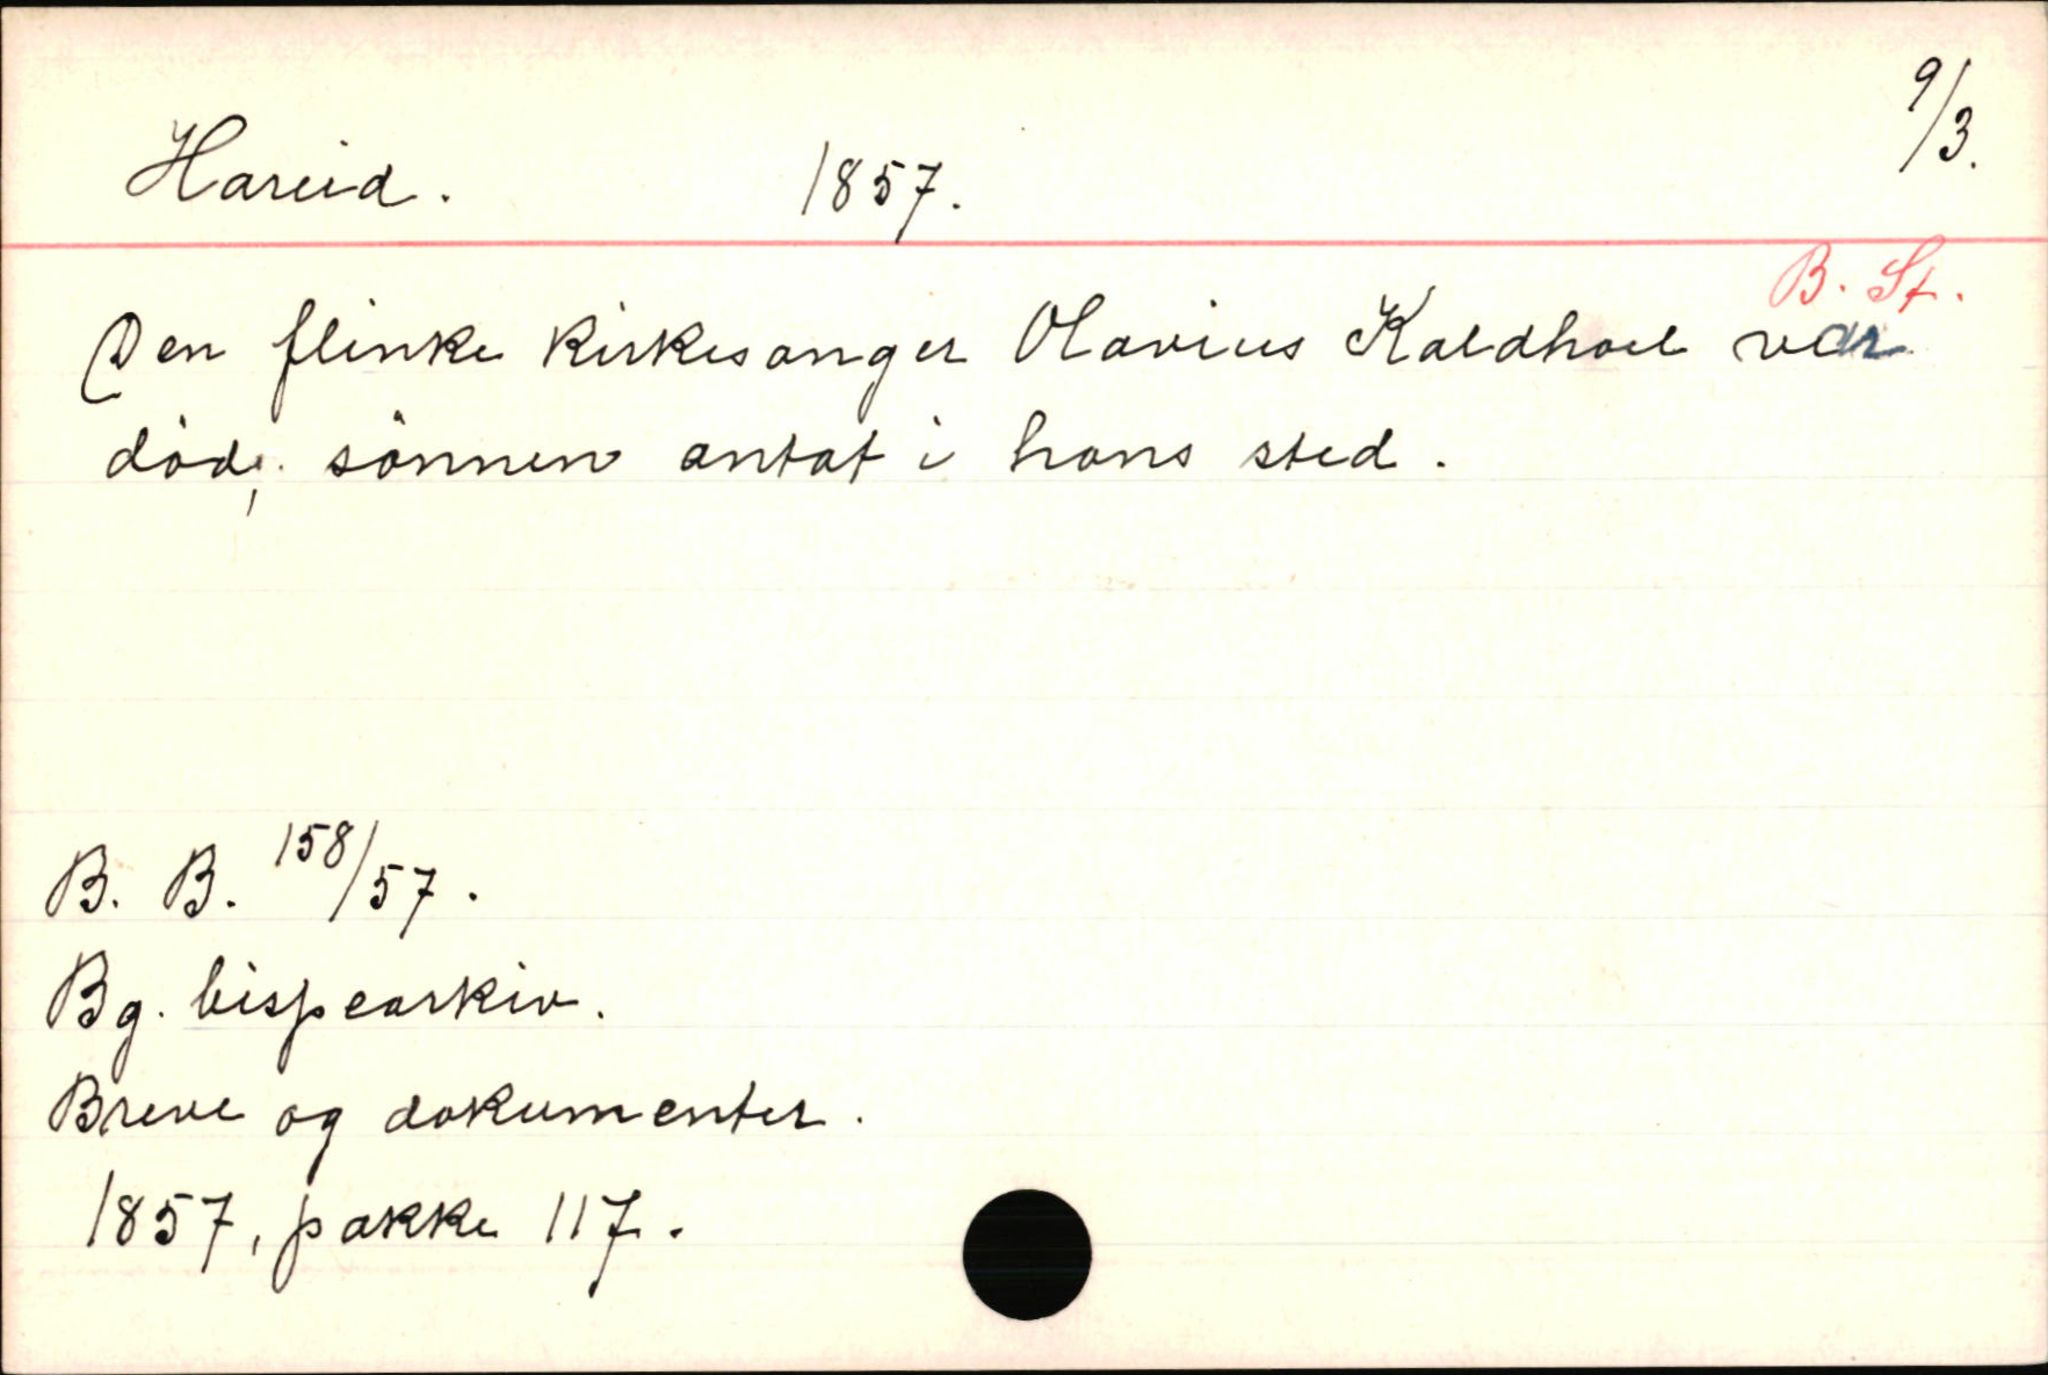 Hareid. 1857. 9/3.
B. St.
Den flinke kirkesanger Olavius Kaldhoel var
död; sönnen antat i hans sted.
B. B. 158/57.
Bg. bispearkiv.
Breve og dokumenter.
1857, pakke 117.